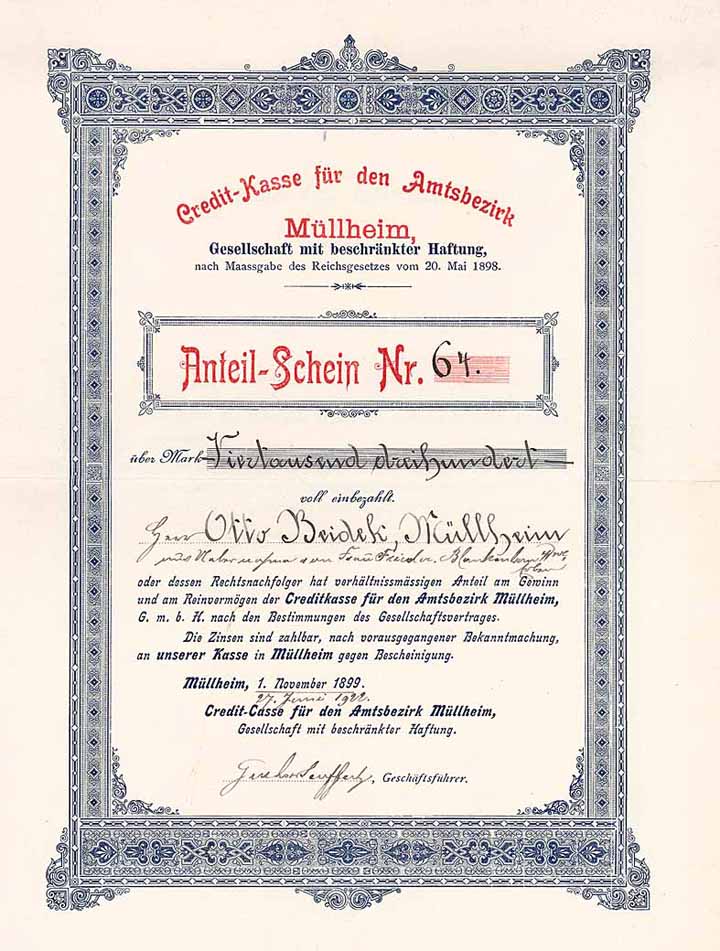 Credit-Kasse für den Amtsbezirk
Müllheim,
Gesellschaft mit beschränkter Haftung,
nach Maassgabe des Reichsgesetzes vom 20. Mai 1898.
Anteil-Schein Nr. 64.
über Mark Viertausend dreihundert
voll einbezahlt.
Herr Otto Beidek, Müllheim
von Frau
oder dessen Rechtsnachfolger hat verhältnissmässigen Anteil am Gewinn
und am Reinvermögen der Creditkasse für den Amtsbezirk Müllheim,
G. m. b. H. nach den Bestimmungen des Gesellschaftsvertrages.
Die Zinsen sind zahlbar, nach vorausgegangener Bekanntmachung,
an unserer Kasse in Müllheim gegen Bescheinigung.
Müllheim, 1. November 1899.
27. Juni 1922.
Credit-Casse für den Amtsbezirk Müllheim,
Gesellschaft mit beschränkter Haftung.
, Geschäftsführer.